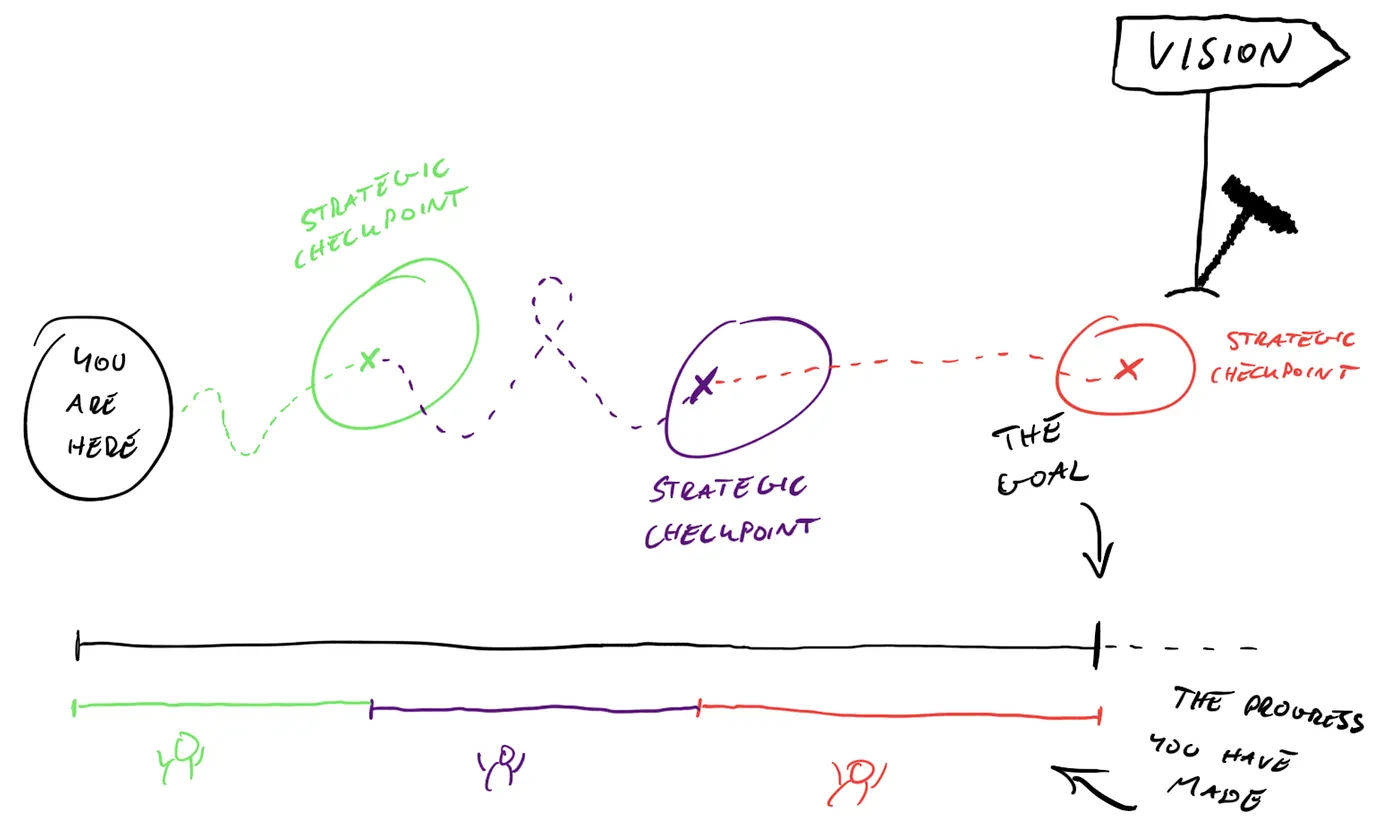 VISION
STRATEGIC
CHECKPOINT
YOU
ARE
HERE
STRATEGIC
CHECKPOINT
THE
GOAL
STRATEGIC
CHECKPOINT
THE PROGRESS
YOU HAVE
MADE